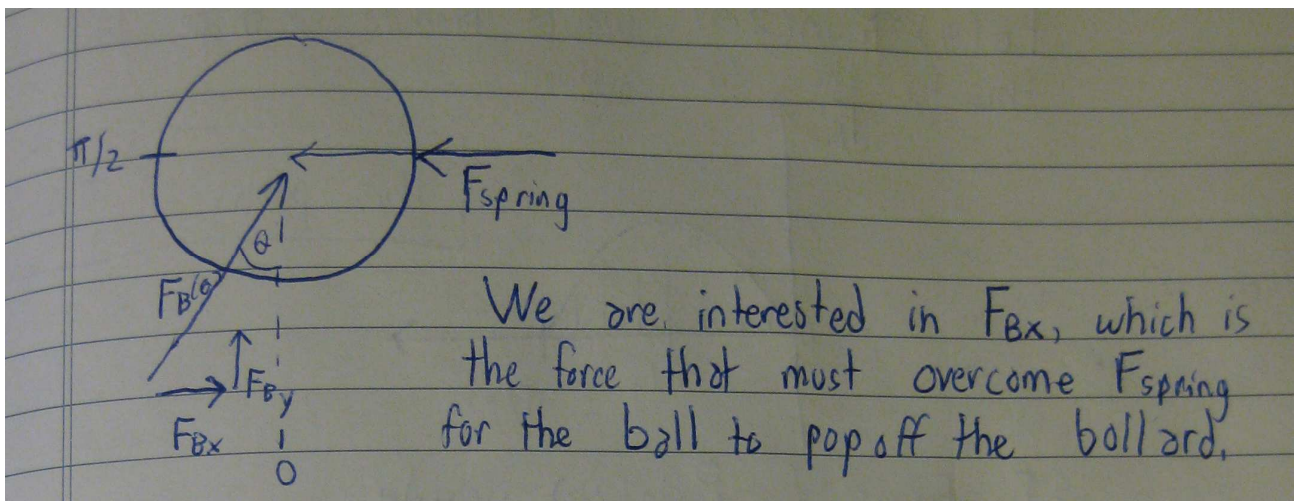 π/2
Fspring
θ
FB(θ)
We are interested in FBx, which is
the force that must overcome Fspring
for the ball to pop off the bollard.
FBy
FBx
0